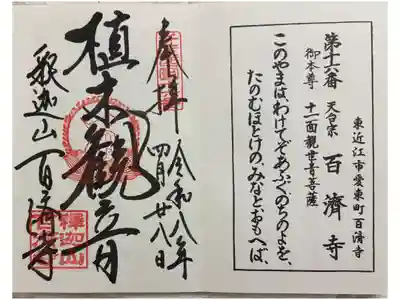 東近江市愛東町百済寺
第十六番 天台宗 百濟寺
御本尊 十一面観世音菩薩
このやまは、わけてぞあふぐ、のちのよを、
たのむほとけの、みなとおもへば、
奉拝 令和八年
四月廿八日
植木観音
釈迦山百済寺